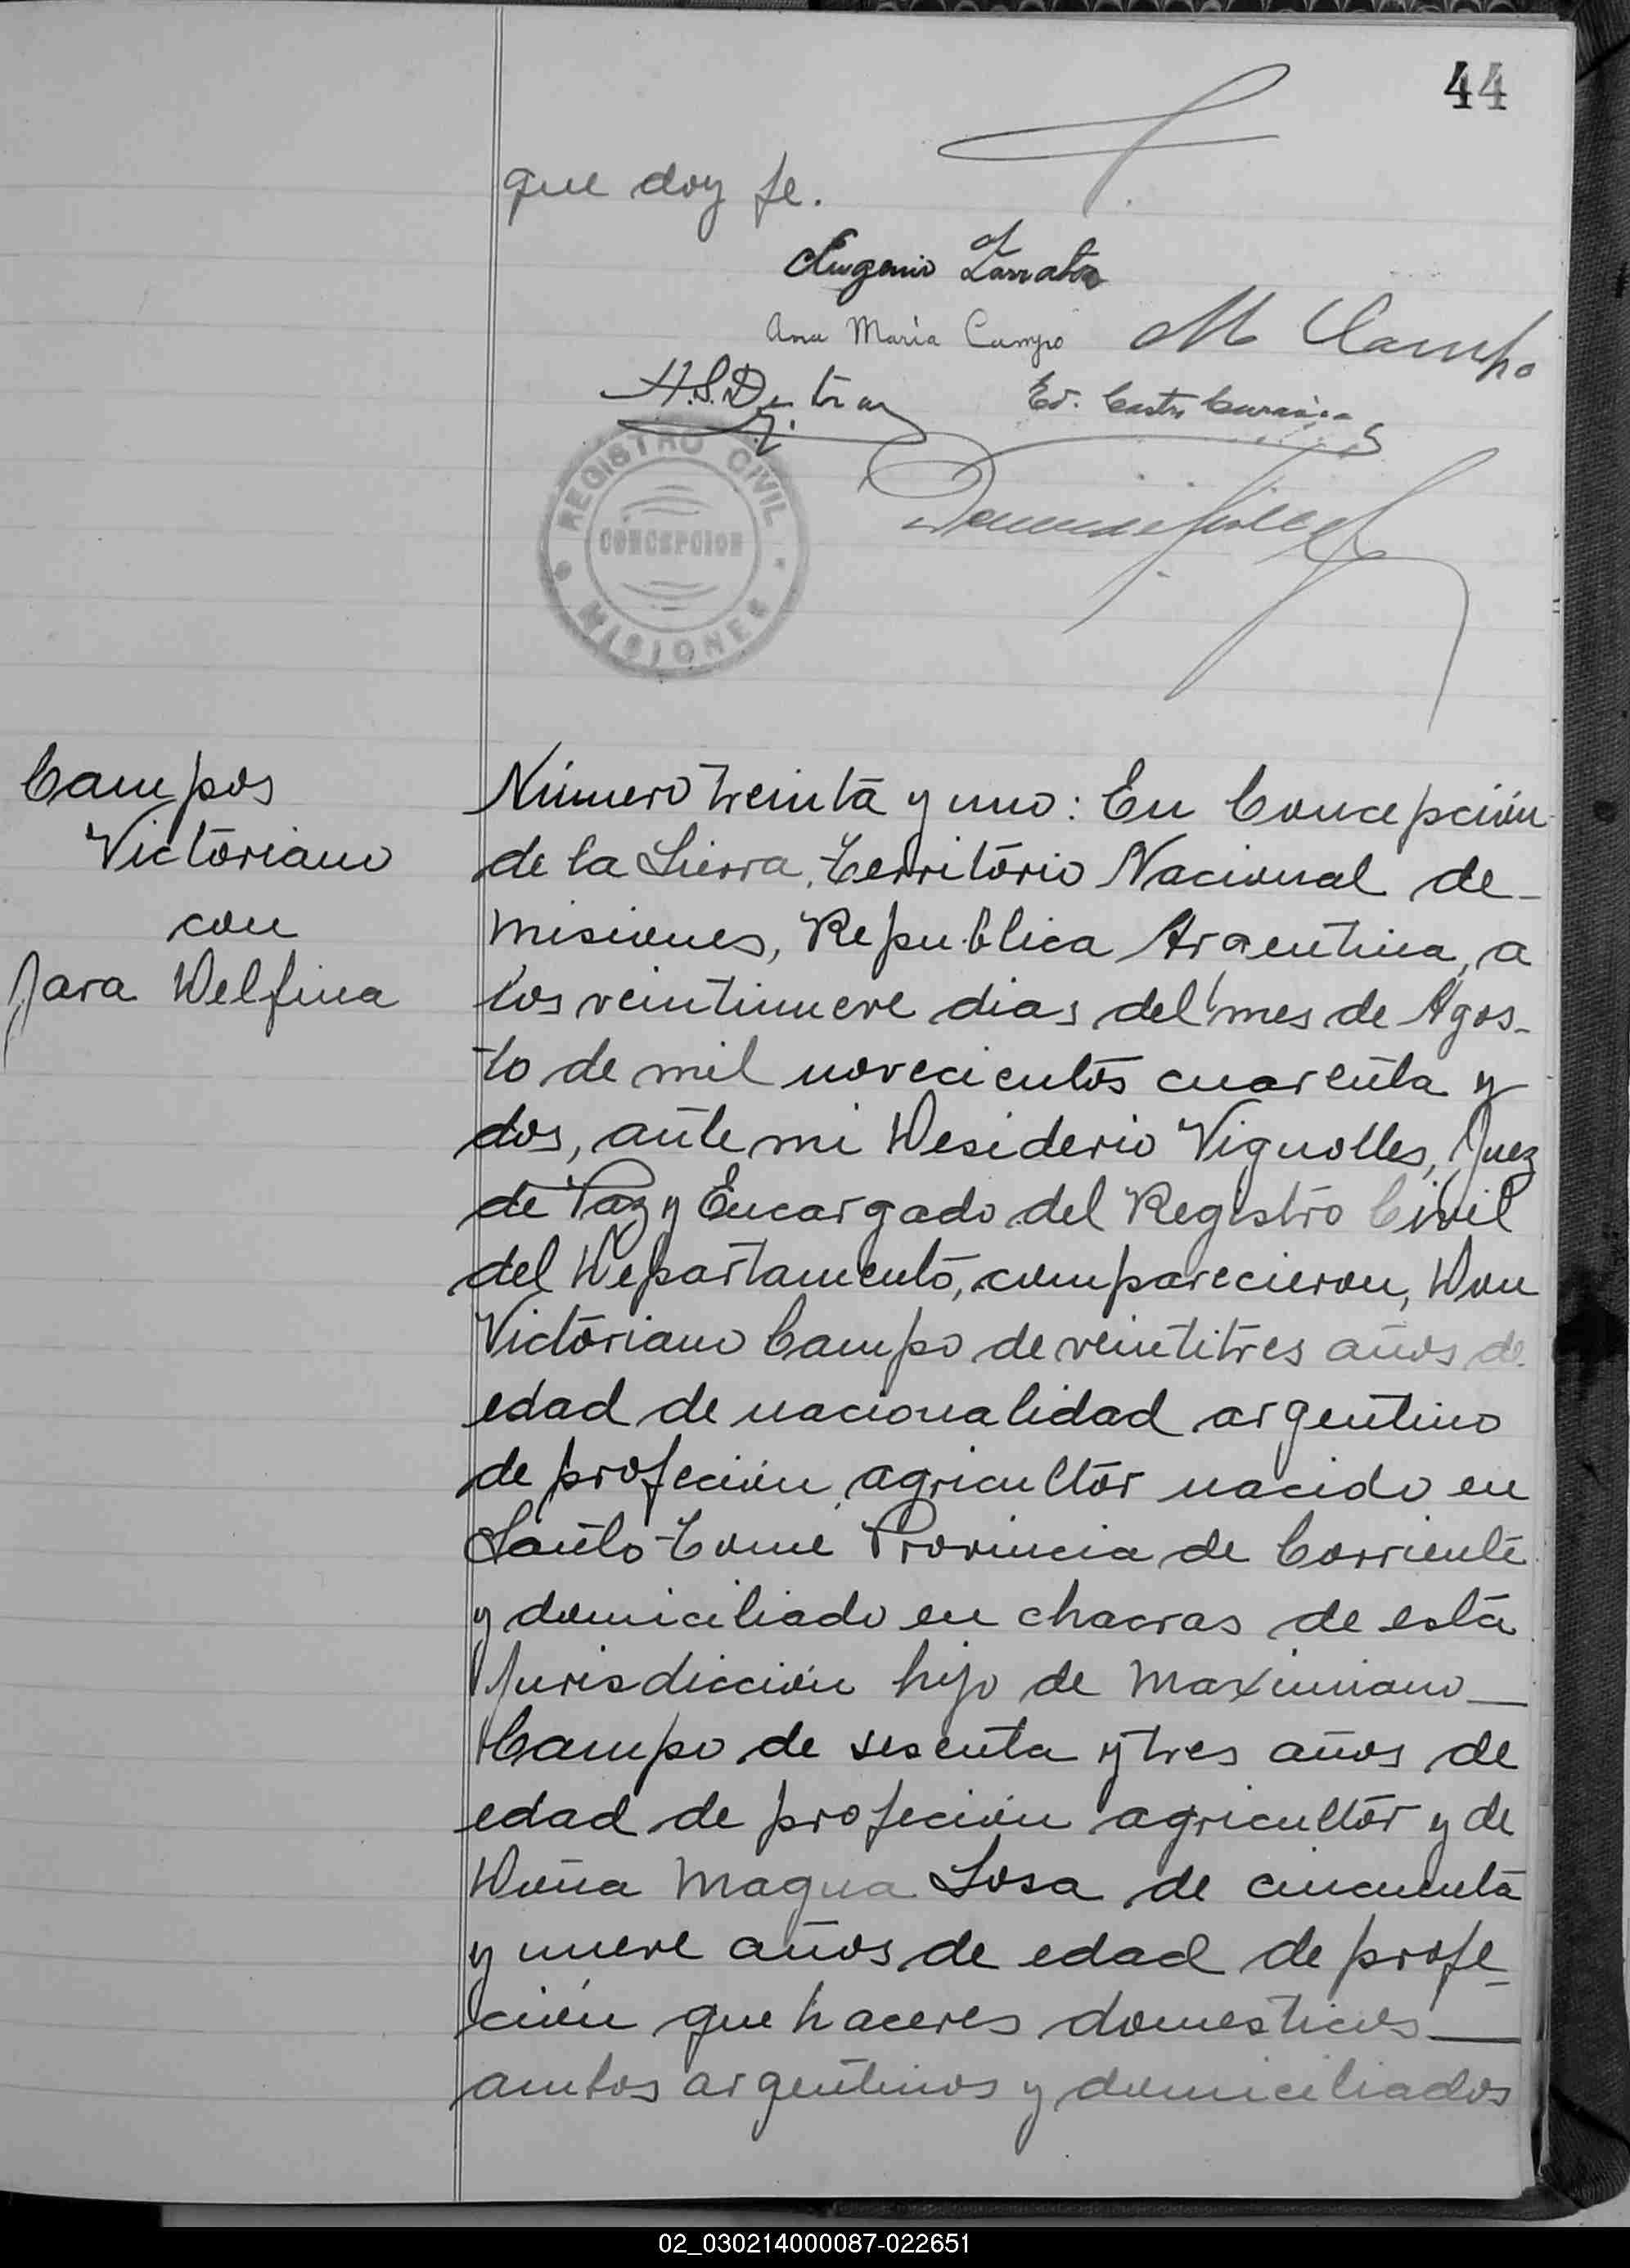 44
que doy fe.
Eugenio
Ana María Campo M Campo
REGISTRO CIVIL
CONCEPCION
MISIONES
Campos
Victoriano
con
Jara Delfina
Número treinta y uno: En Concepción
de la Sierra, Territorio Nacional de-
Misiones, Republica Argentina, a
los veintinueve dias del mes de Agos-
to de mil novecientos cuarenta y
dos, ante mi Desiderio Vignolles, Juez
de Paz y Encargado del Registro Civil
del Departamento, comparecieron, Don
Victoriano Campo de veintitres años de
edad de nacionalidad argentino
de profeción agricultor nacido en
Santo Tomé Provincia de Corriente
y domiciliado en chacras de esta
Jurisdicción hijo de Maximiano
Campo de sesenta y tres años de
edad de profeción agricultor y de
Doña Magna Sosa de cincuenta
y nueve años de edad de profe-
ción que haceres domesticos
ambos argentinos y domiciliados
02_030214000087-022651